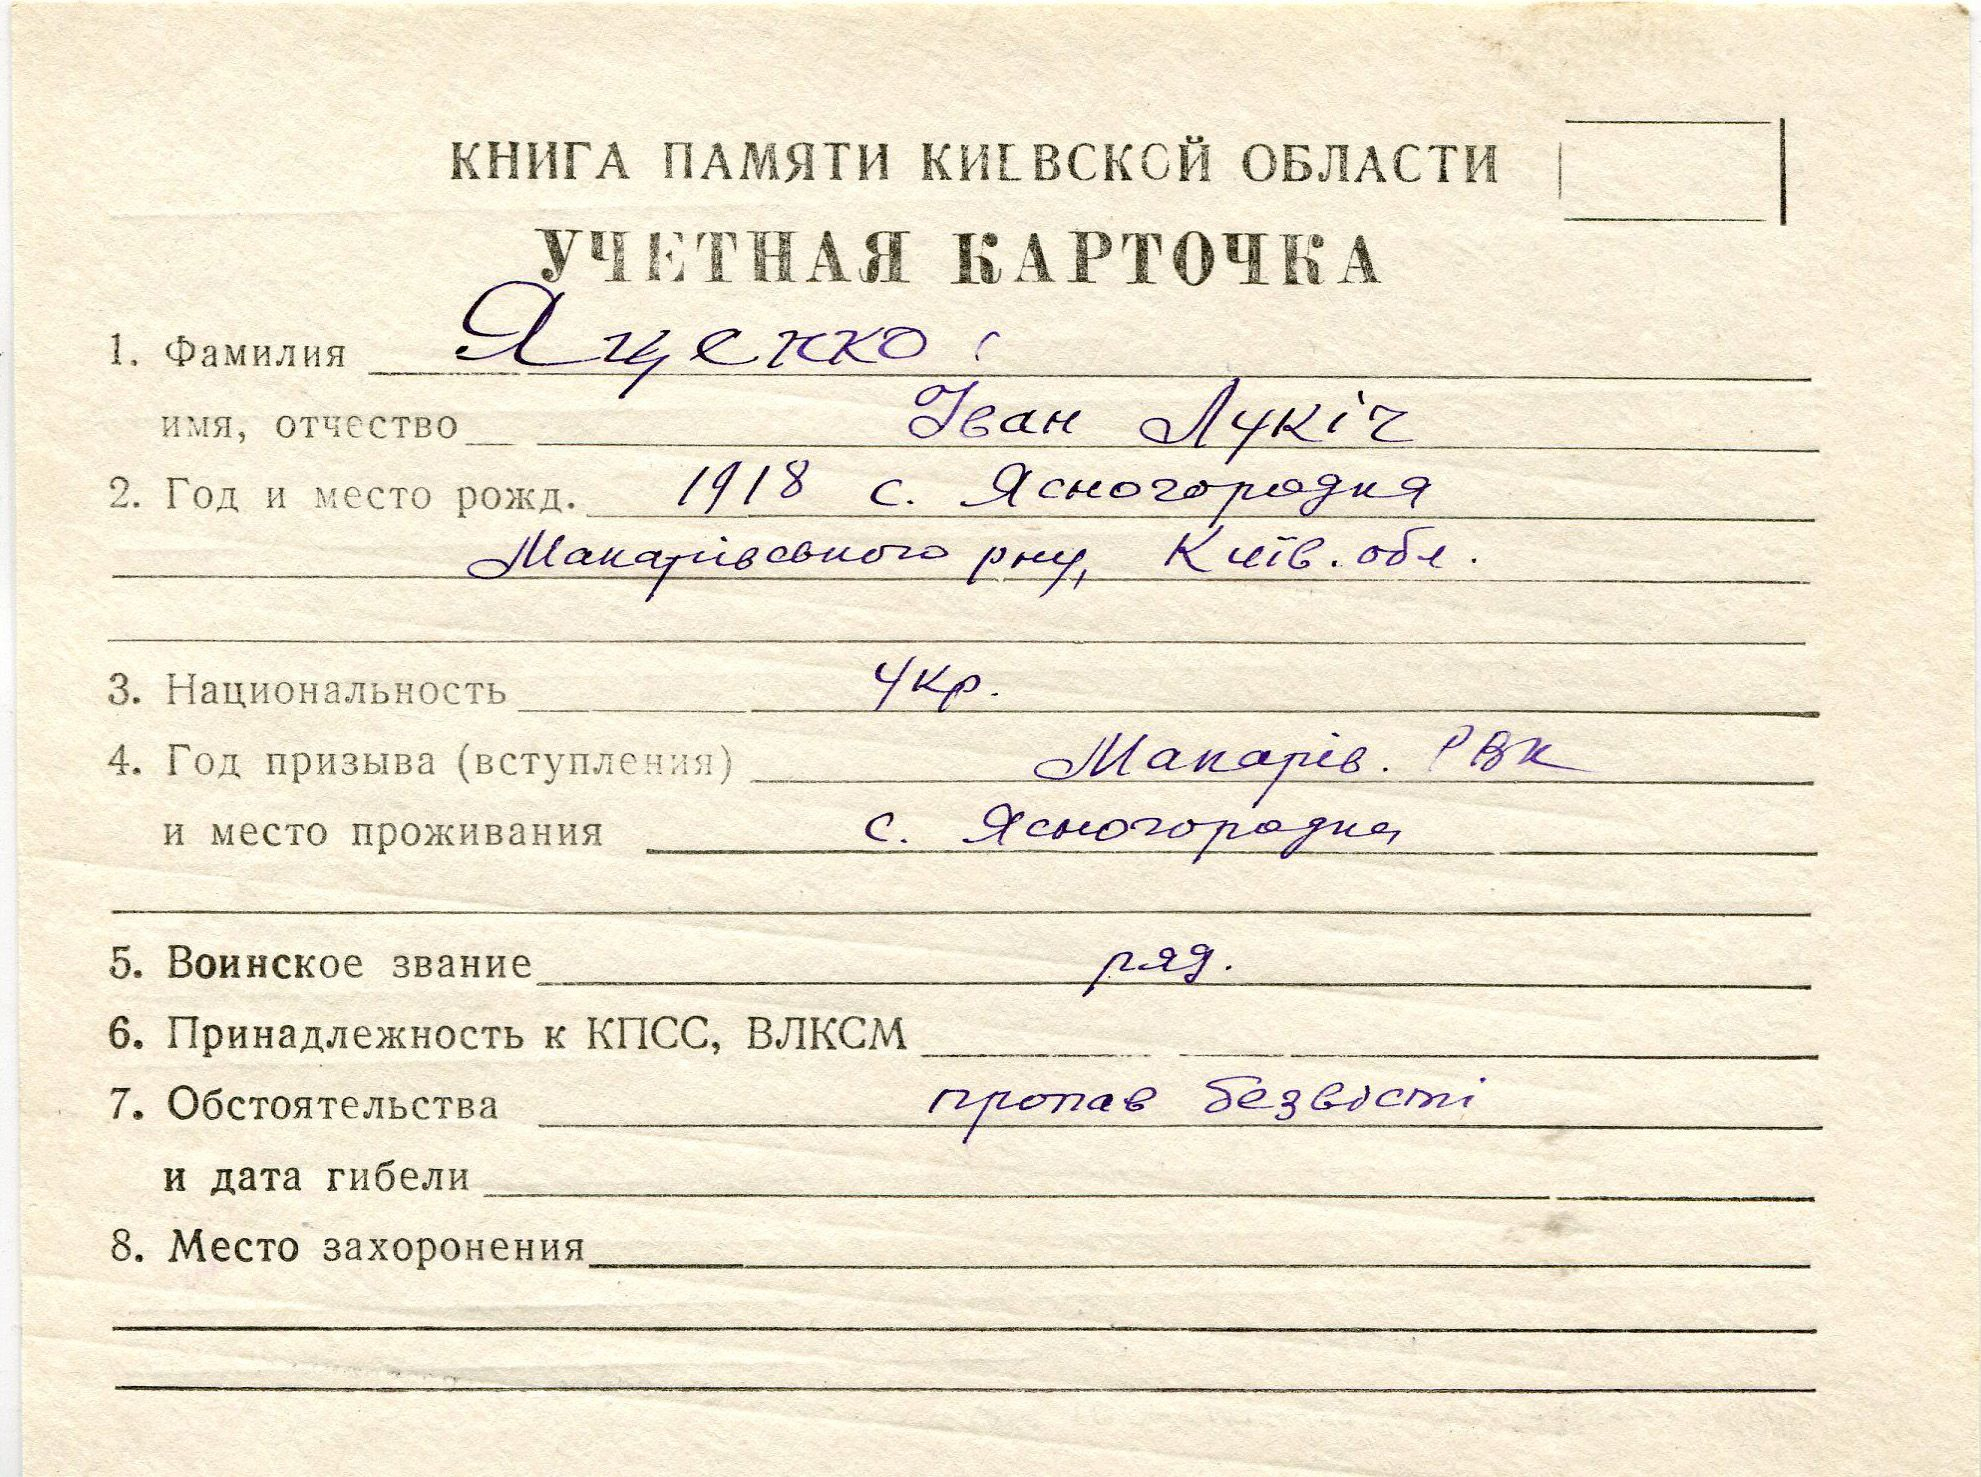 КНИГА ПАМЯТИ КИЕВСКОЙ ОБЛАСТИ
УЧЕТНАЯ КАРТОЧКА
1. Фамилия Ященко
имя, отчество Іван Лукіч
2. Год и место рожд. 1918 с. Ясногородка
Макарівського рну, Київ. обл.
3. Национальность Укр.
4. Год призыва (вступления) Макарів. РВК
и место проживания с. Ясногородка
5. Воинское звание ряд.
6. Принадлежность к КПСС, ВЛКСМ
7. Обстоятельства пропав безвісті
и дата гибели
8. Место захоронения